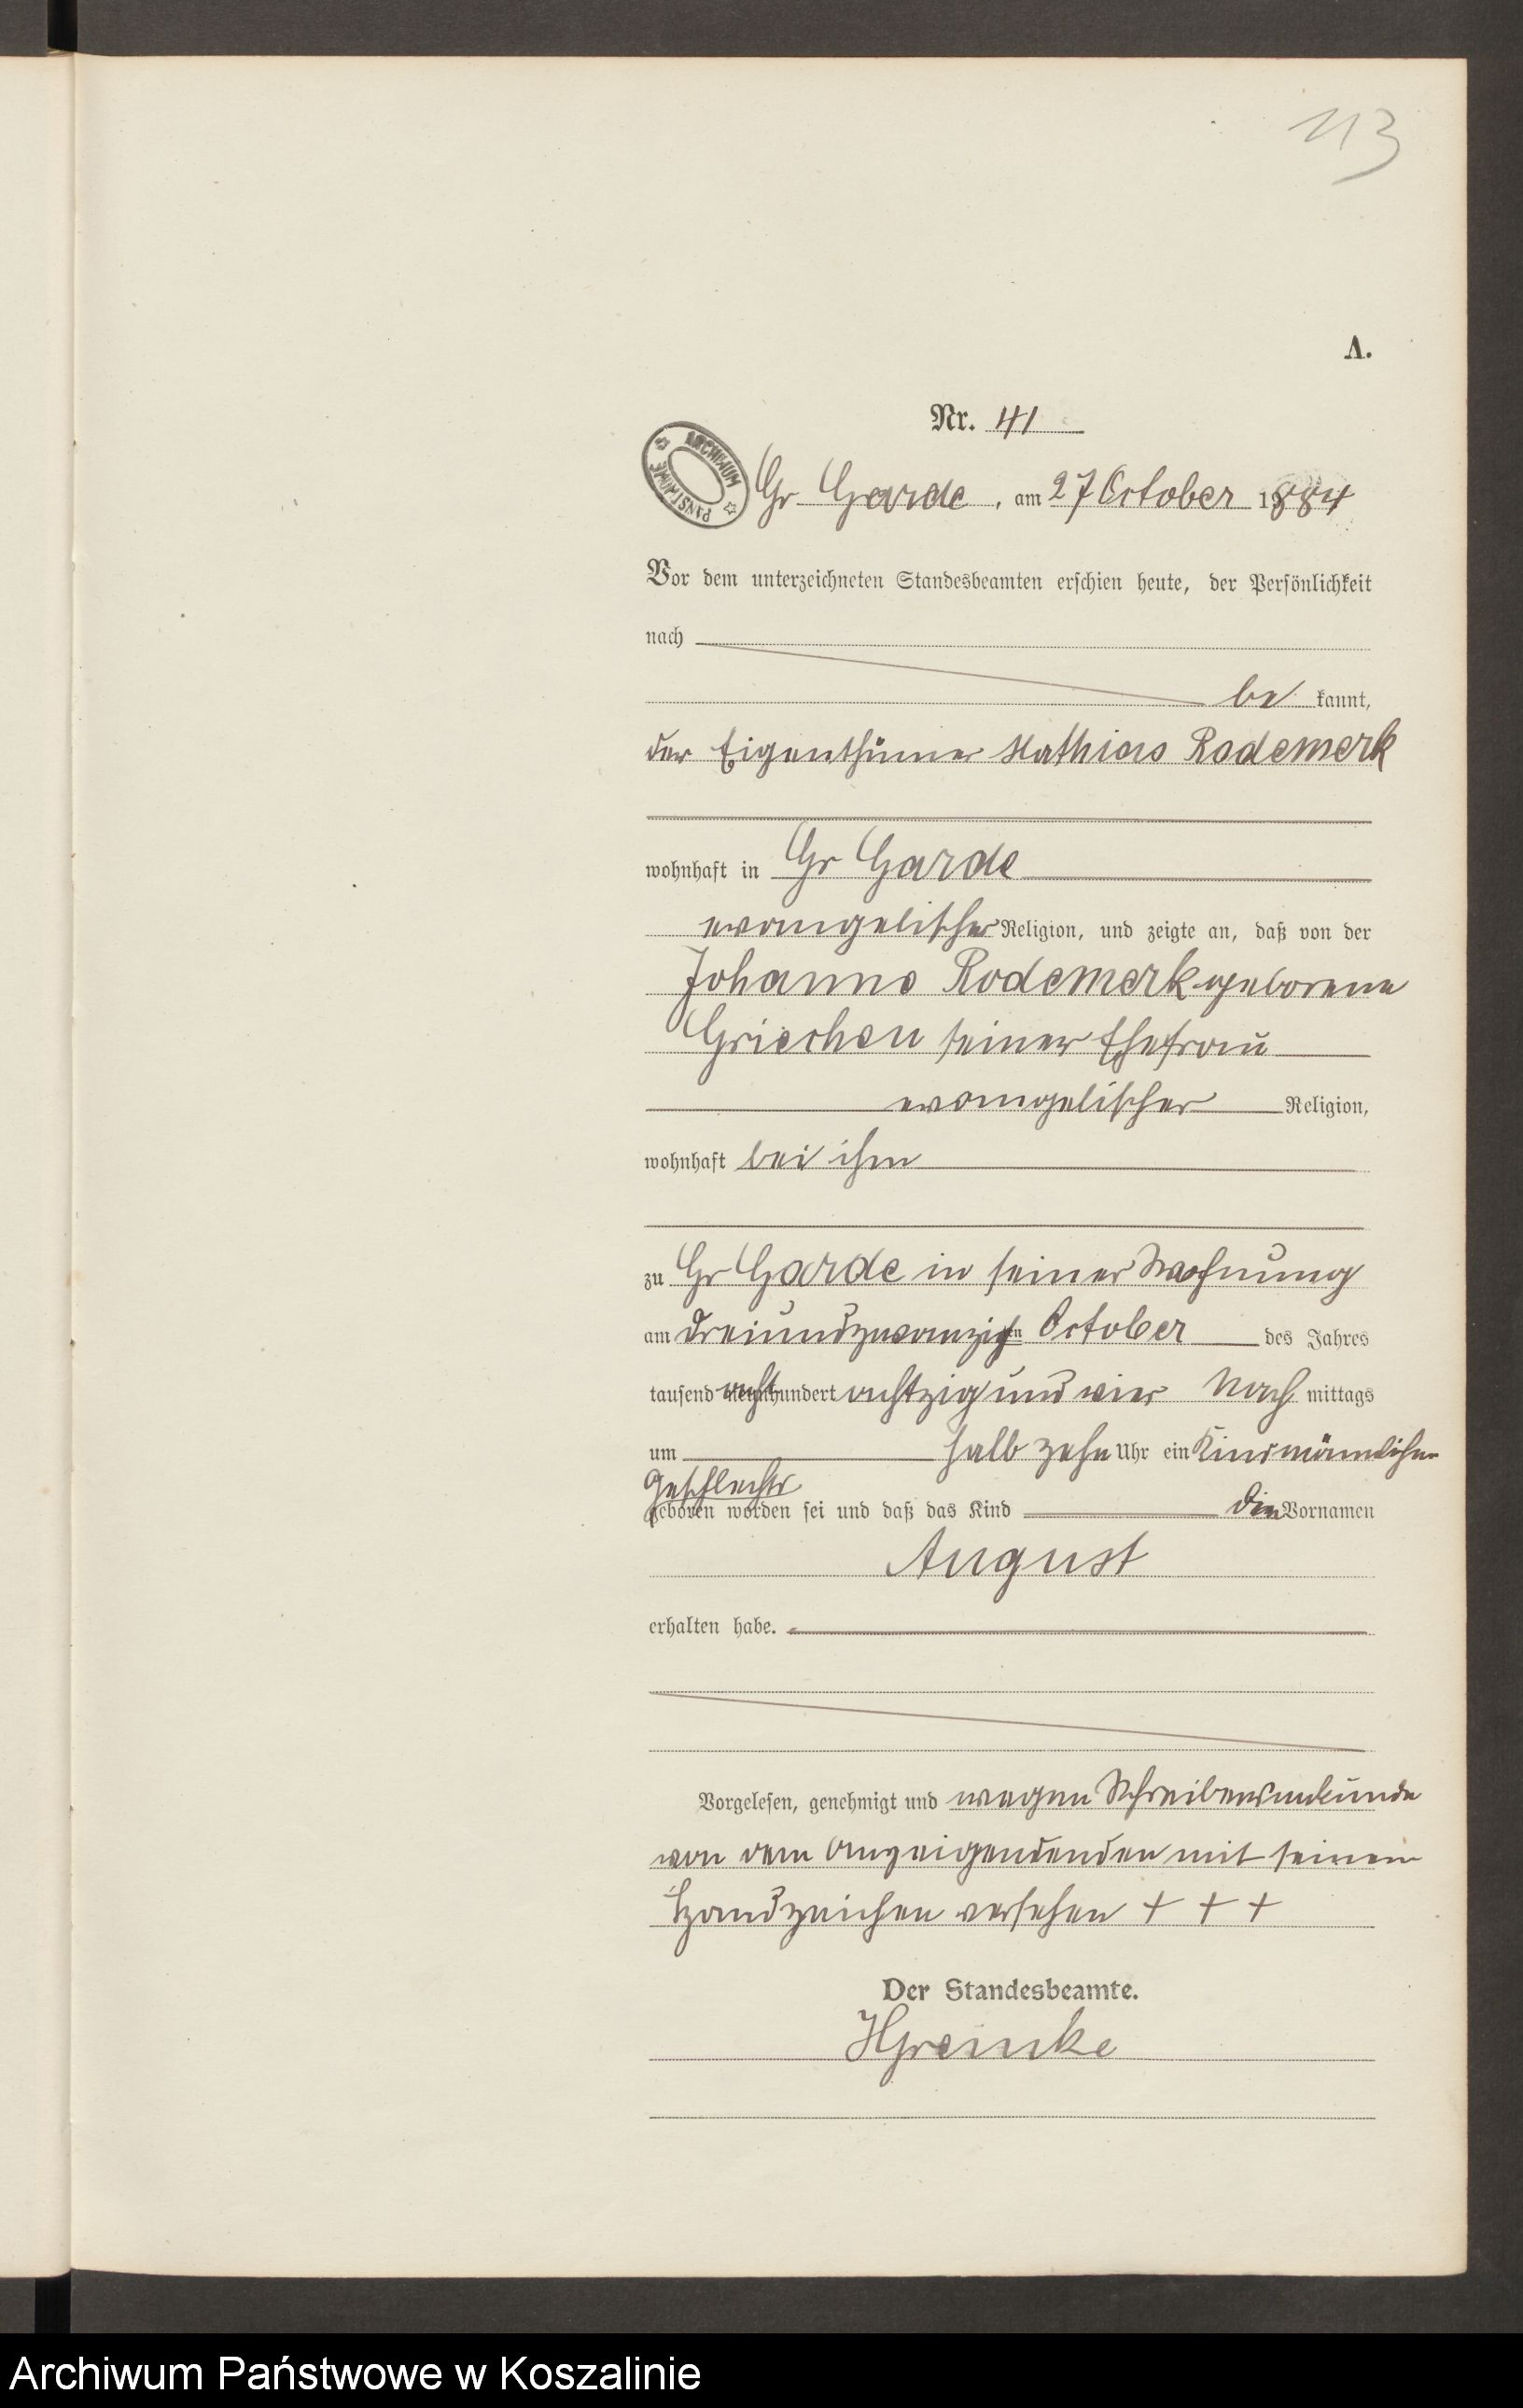 113
A.
Nr. 41
ARCHIWUM PAŃSTWOWE
Gr Garde, am 27 October 1884
Vor dem unterzeichneten Standesbeamten erschien heute, der Persönlichkeit
nach
be kannt,
der Eigenthümer Mathias Rodemerk
wohnhaft in Gr Garde
evangelischer Religion, und zeigte an, daß von der
Johanne Rodemerk geborene
Griechen seiner Ehefrau
evangelischer Religion,
wohnhaft bei ihm
zu Gr Garde in seiner Wohnung
am dreiundzwanzigsten October des Jahres
tausend acht hundert achtzig und vier Nach mittags
um halb zehn Uhr ein Kind männlichen
Geschlechts
geboren worden sei und daß das Kind den Vornamen
August
erhalten habe.
Vorgelesen, genehmigt und wegen Schreibensunkunde
von dem Anzeigendenden mit seinem
Handzeichen versehen + + +
Der Standesbeamte.
Archiwum Państwowe w Koszalinie